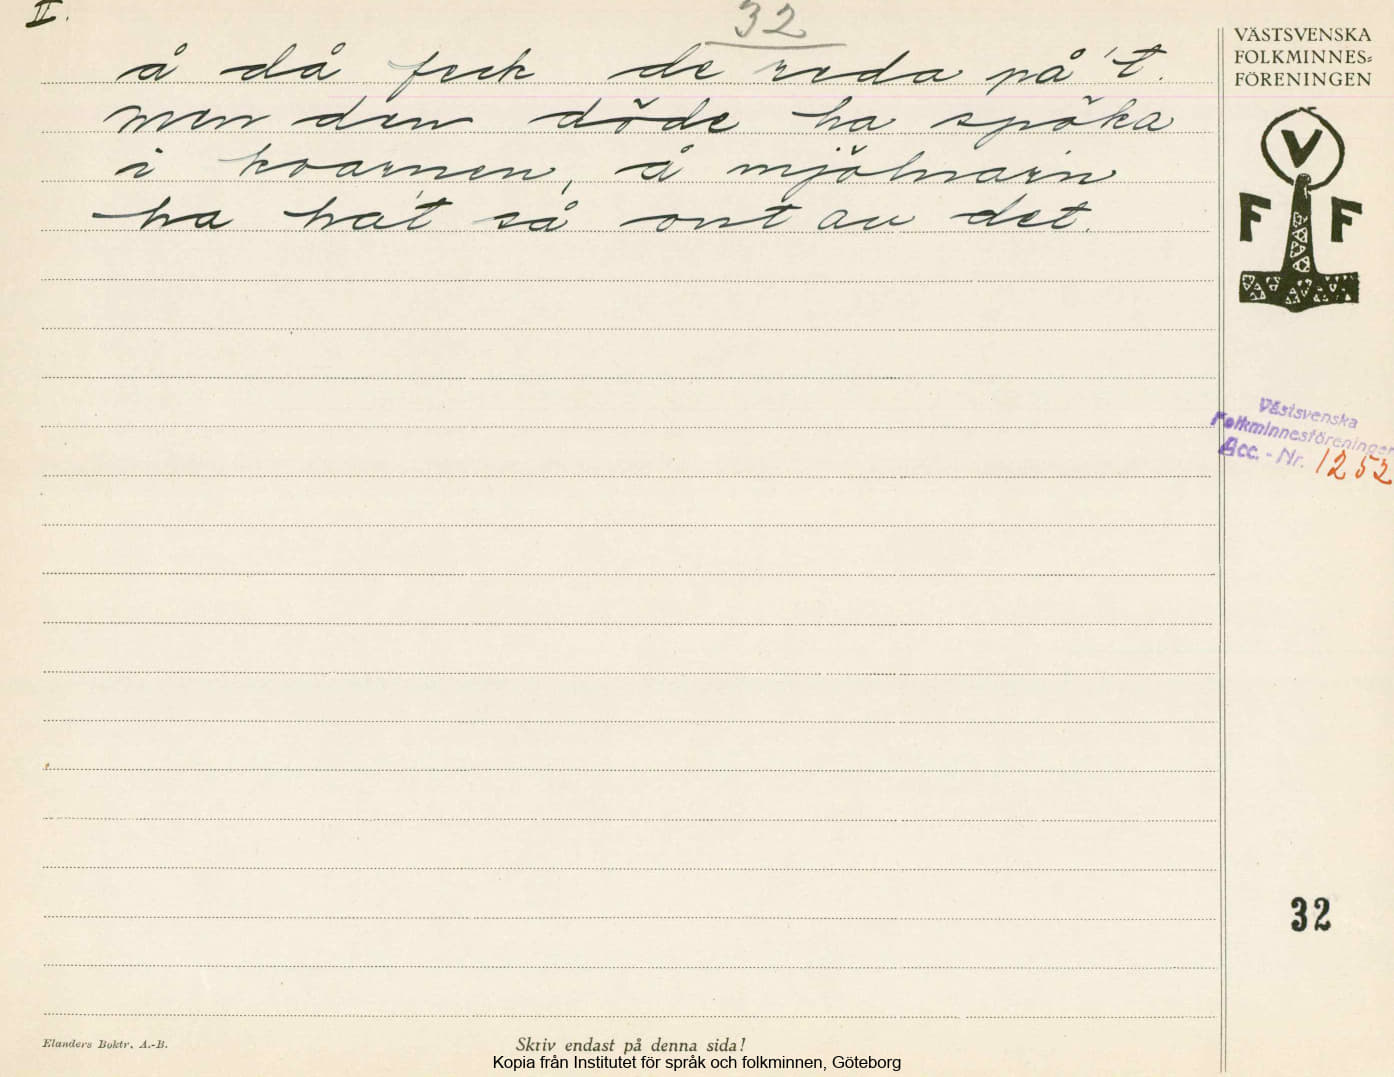 II.
32
å då feck de reda på 't.
men den döde ha spöka
i kvarnen, å mjölnarin
ha ha't så ont au det.
VÄSTSVENSKA
FOLKMINNES=
FÖRENINGEN
V
F F
Västsvenska
Folkminnesföreningen
Acc. - Nr. 1252
32
Elanders Boktr. A.-B.
Skriv endast på denna sida!
Kopia från Institutet för språk och folkminnen, Göteborg